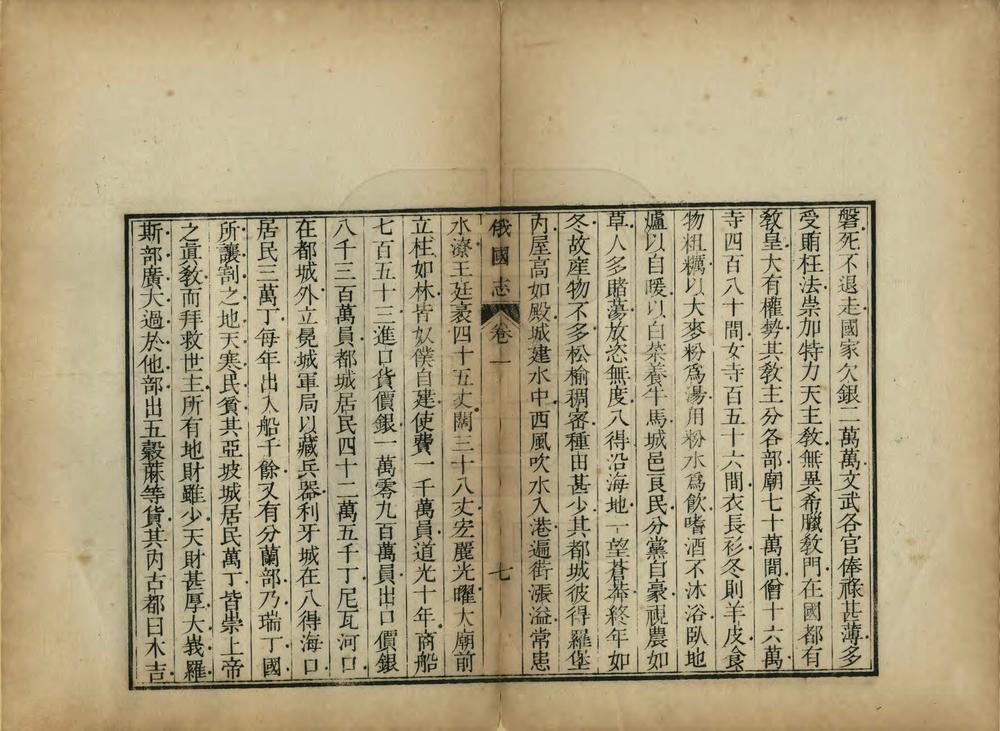 磐死不退走國家欠銀二萬萬文武各官俸祿甚薄多
受賄枉法崇加特力天主敎無異希臘敎門在國都有
敎皇大有權勢其敎主分各部廟七十萬間僧十六萬
寺四百八十間女寺百五十六間衣長衫冬則羊皮食
物粗糲以大麥粉爲湯用粉水爲飮嗜酒不沐浴臥地
爐以自暖以白菜養牛馬城邑良民分黨自豪視農如
草人多賭蕩放恣無度八得沿海地一望蒼茶終年如
冬故産物不多松榆稠密種田甚少其都城彼得羅堡
內屋高如殿城建水中西風吹水入港遍街漲溢常患
俄國志 卷一 七
水潦王廷袤四十五丈闊三十八丈宏麗光曜大廟前
立柱如林皆奴僕自建使費一千萬員道光十年商船
七百五十三進口貨價銀一萬零九百萬員出口價銀
八千三百萬員都城居民四十二萬五千丁尼瓦河口
在都城外立晃城軍局以藏兵器利牙城在八得海口
居民三萬丁每年出入船千餘又有分蘭部乃瑞丁國
所讓割之地天寒民貧其亞坡城居民萬丁皆崇上帝
之眞敎而拜救世主所有地財雖少天財甚厚大峩羅
斯部廣大過於他部出五穀蔴等貨其內古都曰木吉